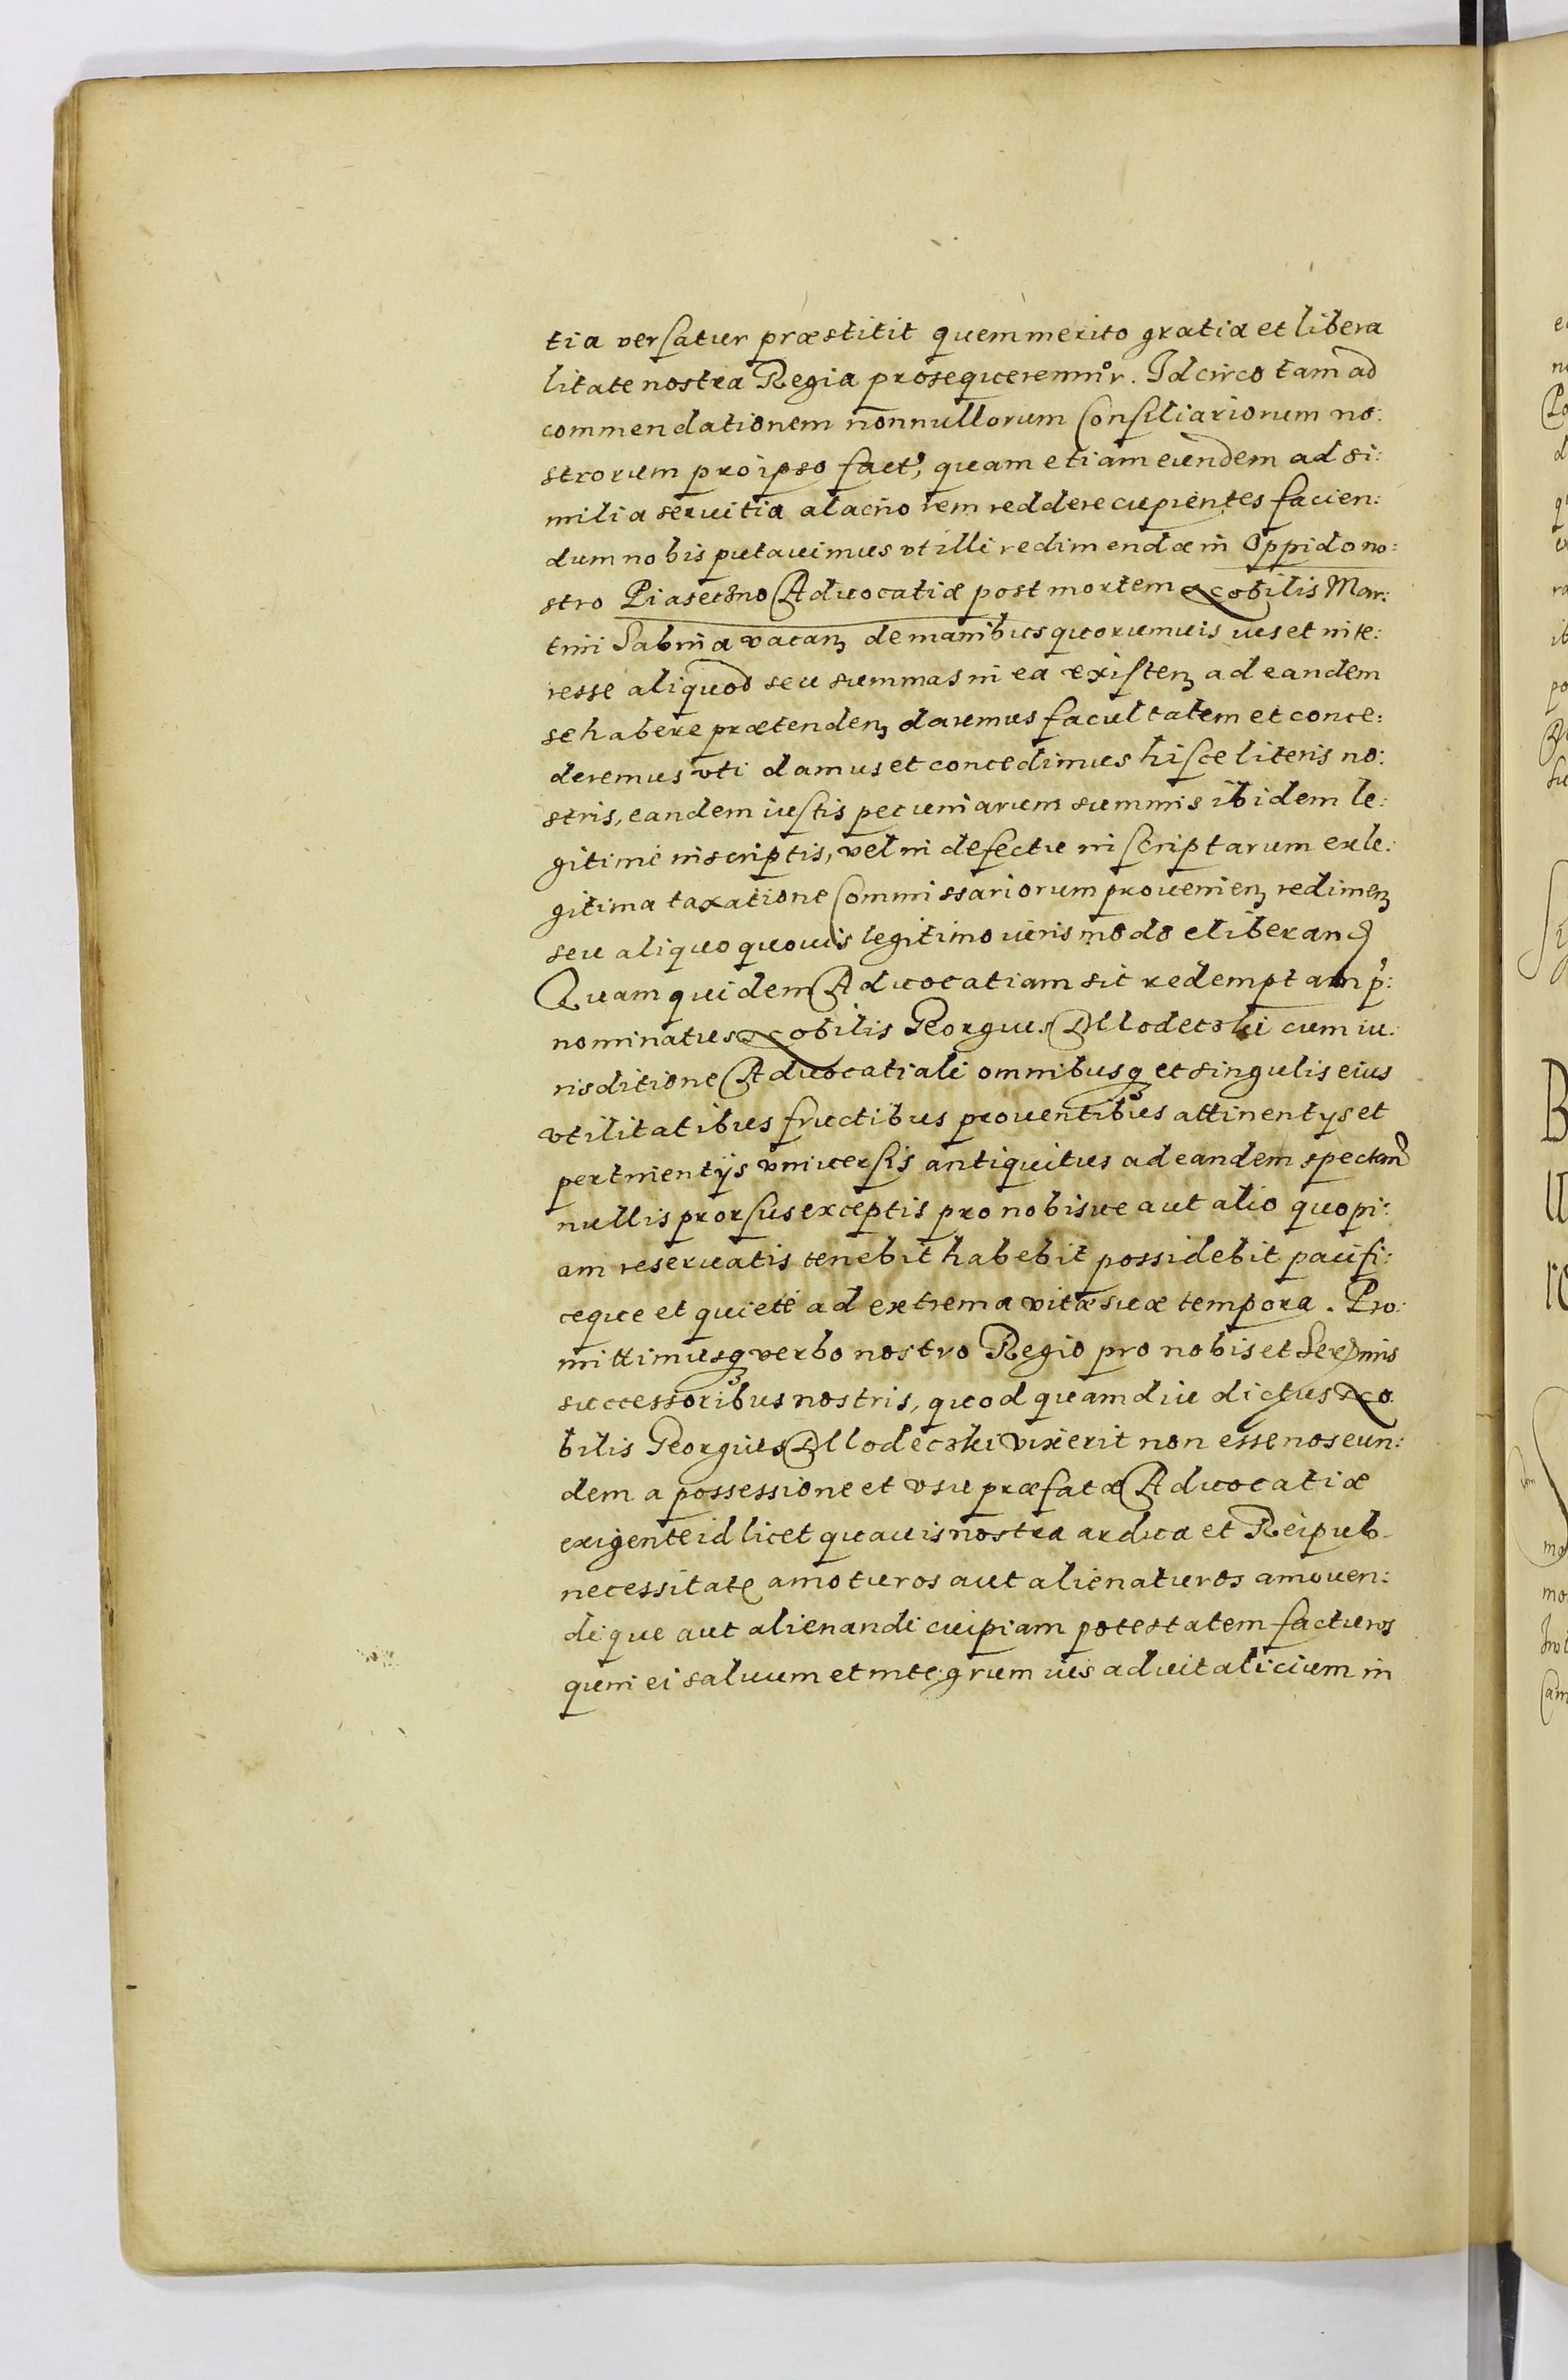 tia versatur præstitit quem merito gratia et libera
litate nostra Regia prosequeremur. Idcirco tam ad
commendationem nonnullorum Consiliariorum no:
strorum pro ipso fact, quam etiam eundem ad si:
milia seruitia alacriorem reddere cupientes facien:
dum nobis putauimus vt illi redimendæ in Oppido no:
stro Piaseczno Aduocatiæ post mortem Nobilis Mar:
tini Sabina vacan de manibus quorumuis ius et inte:
resse aliquod seu summas in ea existen ad eandem
se habere prætenden daremus facultatem et conce:
deremus vti damus et concedimus hisce literis no:
stris, eandem iustis pecuniarum summis ibidem le:
gitime inscriptis, vel in defectu inscriptarum ex le:
gitima taxatione Commissariorum prouenien redimen
seu aliquo quouis legitimo iuris modo eliberand
Quam quidem Aduocatiam sic redemptam p:
nominatus Nobilis Georgius Mlodecski cum iu:
risditione Aduocatiali omnibusq et singulis eius
vtilitatibus fructibus prouentibus attinentijs et
pertinentijs vniuersis antiquitus ad eandem spectan
nullis prorsus exceptis pro nobisue aut alio quopi:
am reseruatis tenebit habebit possidebit pacifi:
ceque et quiete ad extrema vitæ suæ tempora. Pro:
mittimusq verbo nostro Regio pro nobis et Ser mis
successoribus nostris, quod quamdiu dictus No
bilis Georgius Mlodecski vixerit non esse nos eun:
dem a possessione et vsu præfatæ Aduocatiæ
exigente id licet quauis nostra ardua et Reipub-
necessitate amoturos aut alienaturos amouen:
di que aut alienandi cuipiam potestatem facturos
quin ei saluum et integrum ius aduitalicium in